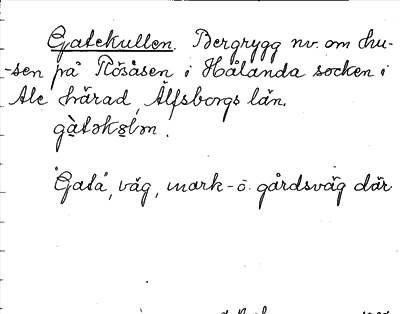 Gatekullen. Bergrygg nv. om hu-
-sen på Rösåsen i Hålanda socken i
Ale härad, Älfsborgs län.
"Gata", väg, mark- o. gårdsväg där